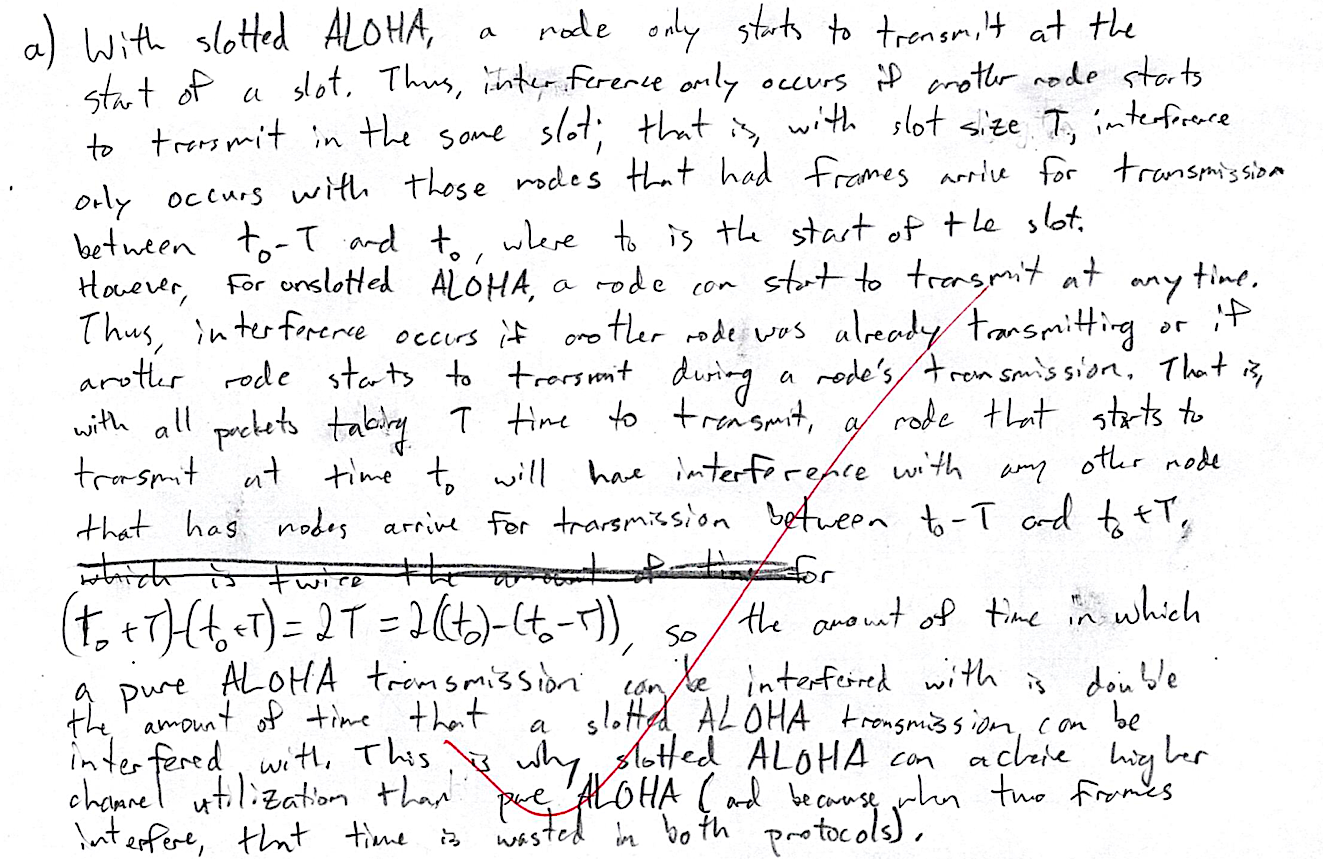 a) With slotted ALOHA, a node only starts to transmit at the
start of a slot. Thus, interference only occurs if another node starts
to transmit in the same slot; that is, with slot size T, interference
only occurs with those nodes that had frames arrive for transmission
between t₀-T and t₀, where t₀ is the start of the slot.
However, for unslotted ALOHA, a node can start to transmit at any time.
Thus, interference occurs if another node was already transmitting or if
another node starts to transmit during a node's transmission. That is,
with all packets taking T time to transmit, a node that starts to
transmit at time t₀ will have interference with any other node
that has nodes arrive for transmission between t₀-T and t₀+T,
which is twice the amount of time for
(t₀+T)-(t₀+T)=2T=2((t₀)-(t₀-T)), so the amount of time in which
a pure ALOHA transmission can be interfeired with is double
the amount of time that a slotted ALOHA transmission can be
interfered with. This is why slotted ALOHA can achieve higher
channel utilization than pure ALOHA (and because when two frames
interfere, that time is wasted in both protocols).